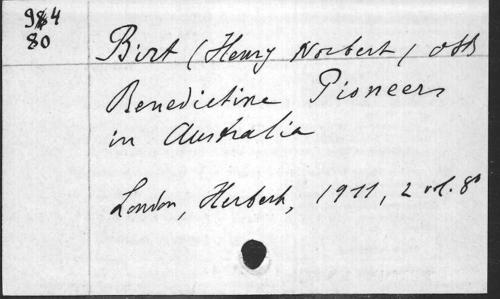 984
80
Birt (Henry Norbert) OSB
Benedictine Pioneers
in Australia
London, Herbert, 1911, 2 vol. 8°